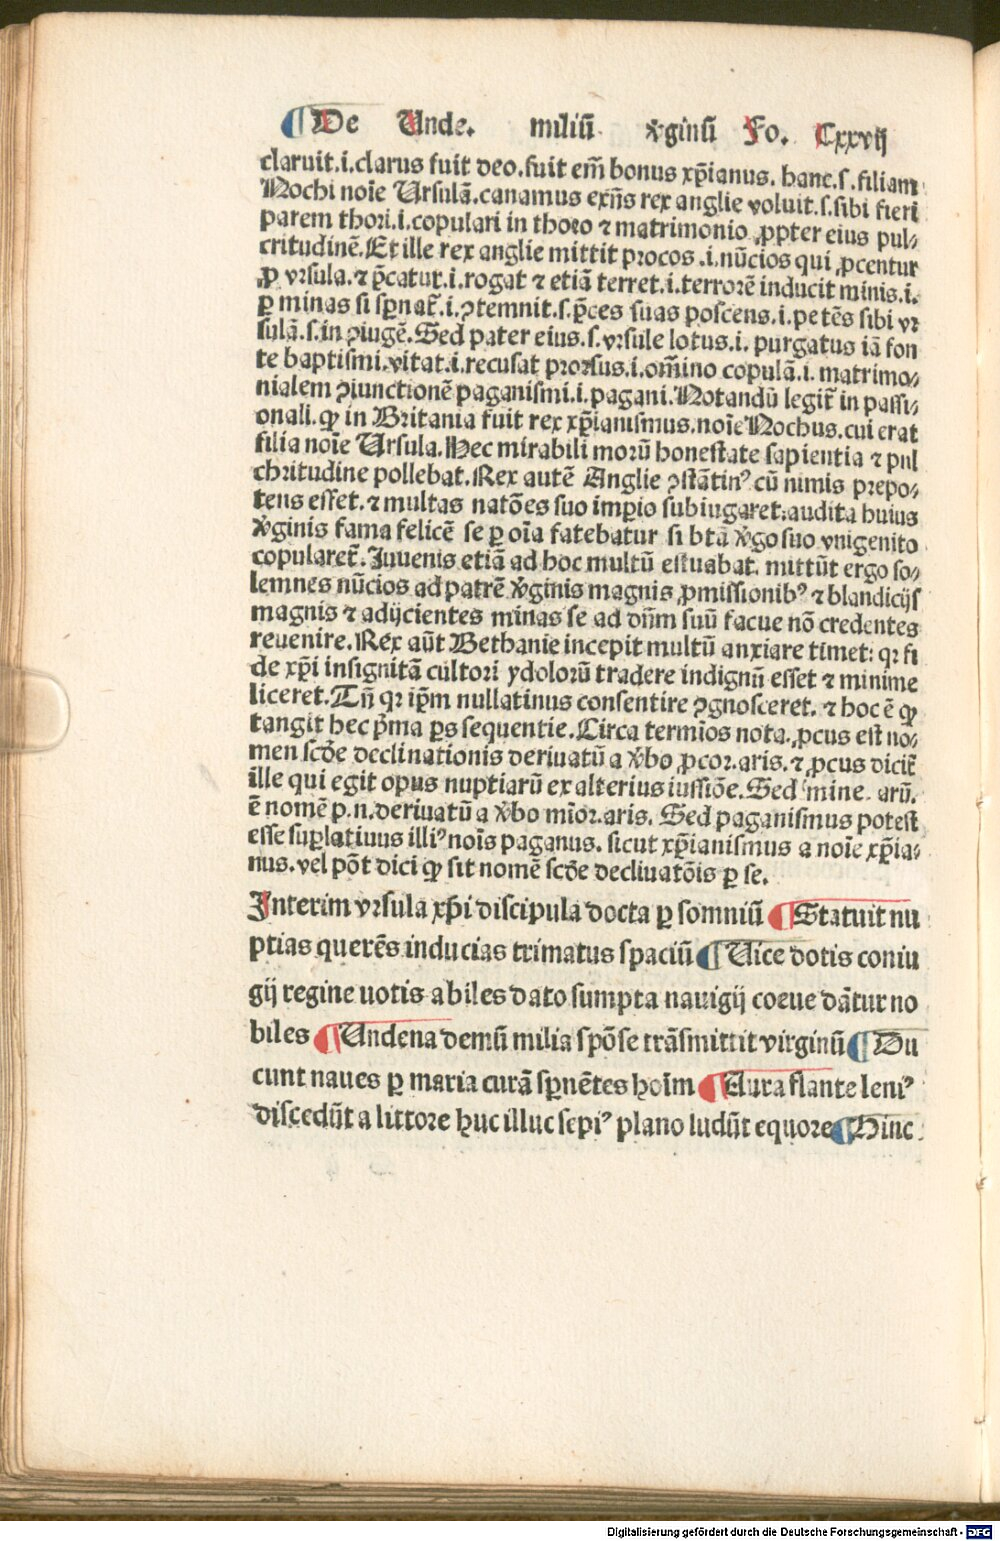 ¶ De Unde. miliū v̄ginū Fo. Cxxvij
claruit.i.clarus fuit deo.fuit em̄ bonus xp̄ianus. hanc.s.filiam
Nochi noīe Ursulā.canamus exn̄s rex anglie voluit.s.sibi fieri
parem thori.i.copulari in thoro ⁊ matrimonio ꝓpter eius pul⸗
critudinē.Et ille rex anglie mittit procos .i.nūcios qui ꝓcentur
ꝓ vrsula.⁊ p̄catur.i.rogat ⁊ etiā terret.i.terrorē inducit minis.i.
ꝑ minas si sꝑnat̄.i.ꝯtemnit.s.p̄ces suas poscens.i.petēs sibi vr
sulā.s.in ꝯiugē.Sed pater eius.s.vrsule lotus.i. purgatus iā fon
te baptismi.vitat.i.recusat prorsus.i.om̄ino copulā.i. matrimo⸗
nialem ꝯiunctionē paganismi.i.pagani.Notandū legit̄ in passi⸗
onali.ꝙ in Britania fuit rex xp̄ianismus.noīe Nochus.cui erat
filia noīe Ursula.Hec mirabili morū honestate sapientia ⁊ pul
chritudine pollebat.Rex autē Anglie ꝯstātinꝰ cū nimis prepo⸗
tens esset.⁊ multas natōes suo imꝑio subiugaret:audita huius
v̄ginis fama felicē se ꝑ oīa fatebatur si btā v̄go suo vnigenito
copularet̄.Iuvenis etiā ad hoc multū estuabat. mittūt ergo so⸗
lemnes nūcios ad patrē v̄ginis magnis ꝓmissionibꝰ ⁊ blandicijs
magnis ⁊ adijcientes minas se ad dn̄m suū facue nō credentes
revenire.Rex aūt Bethanie incepit multū anxiare timet: qꝛ fi
de xp̄i insignitā cultori ydolorū tradere indignū esset ⁊ minime
liceret.Tn̄ qꝛ ip̄m nullatinus consentire ꝯgnosceret. ⁊ hoc ē ꝙ
tangit hec p̄ma ꝑs sequentie.Circa termīos nota.ꝓcus est no⸗
men scd̄e declinationis derivatū a v̄bo ꝓcor.aris.⁊ ꝓcus dicit̄
ille qui egit opus nuptiarū ex alterius iussiōe.Sed mine. arū.
ē nomē p.n.derivatū a v̄bo mīor.aris. Sed paganismus potest
esse suꝑlativus illiꝰ noīs paganus. sicut xp̄ianismus a noīe xp̄ia⸗
nus.vel pōt dici ꝙ sit nomē scd̄e declivatōis ꝑ se.
Interim vrsula xp̄i discipula docta ꝑ somniū ¶ Statuit nu
ptias querēs inducias trimatus spaciū ¶ Vice dotis coniu
gij regine votis abiles dato sumpta navigij coeue dātur no
biles ¶ Undena demū milia spōse trāsmittit virginū ¶ Du
cunt naues ꝑ maria curā sꝑnētes hoīm ¶ Aura flante leniꝰ
discedūt a littore huc illuc sepiꝰ plano ludūt equore ¶ Hinc
Digitalisierung gefördert durch die Deutsche Forschungsgemeinschaft - DFG